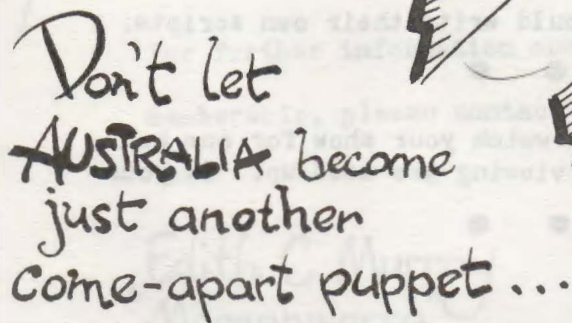 Don't let
AUSTRALIA become
just another
come-apart puppet...